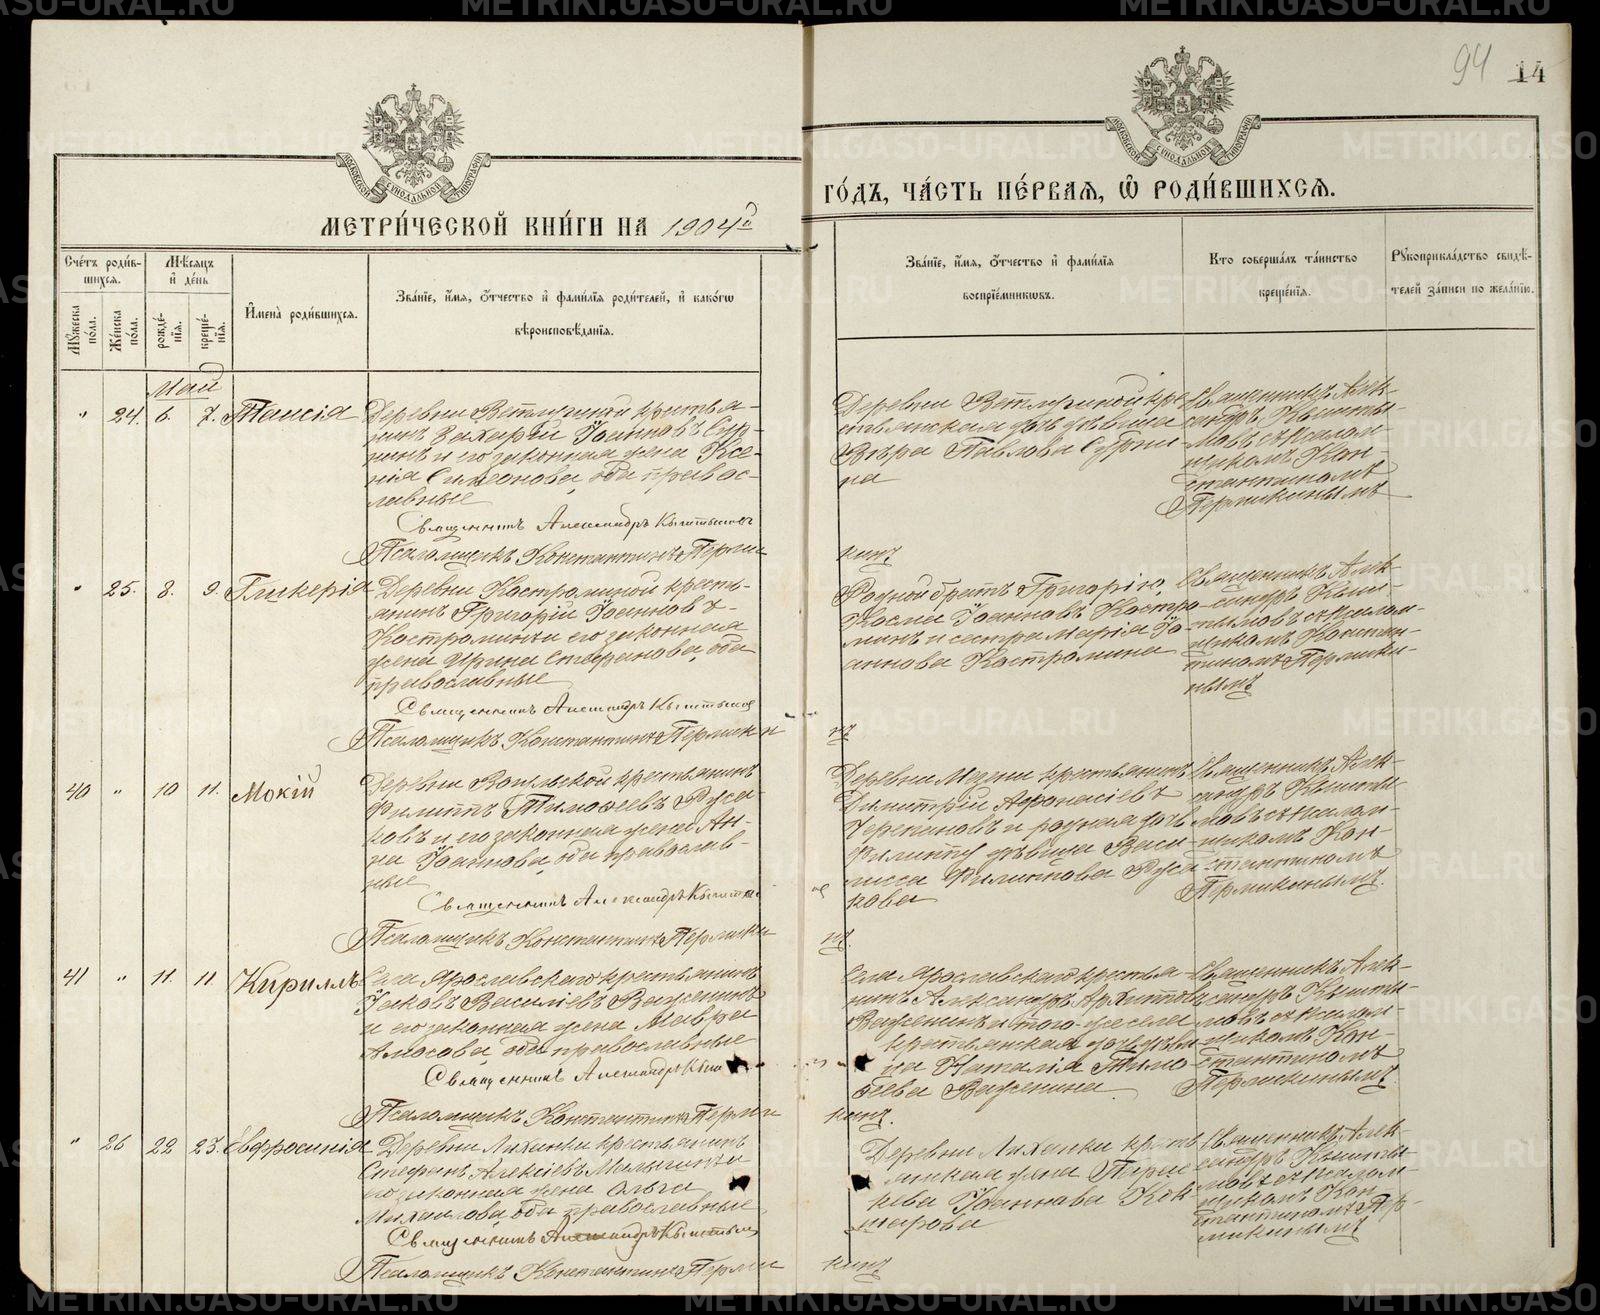 94 14
МЕТРИ́ЧЕСКОЙ КНИ́ГИ НА 1904 й
ГО́ДЪ, ЧА́СТЬ ПЕ́РВАЯ, Ѿ РОДИ́ВШИХСѦ.
Сче́тъ роди́в-
шихсѧ.
Мꙋ́жеска по́ла.
Же́нска по́ла.
Мѣ́сѧцъ
и҆ де́нь
рожде́-
нїѧ.
креще́-
нїѧ.
И҆мена̀ роди́вшихсѧ.
Зва́нїе, и҆́мѧ, ѻ҆́тчество и҆ фами́лїѧ роди́телей, и҆ како́гѡ
вѣроисповѣ́данїѧ.
Зва́нїе, и҆́мѧ, ѻ҆́тчество и҆ фами́лїѧ
воспрїе́мникѡвъ.
Кто̀ соверша́лъ та́инство
креще́нїѧ.
Рꙋкоприкла́дство свидѣ́-
телей за́писи по жела́нїю.
Май
" 24. 6. 7. Таисія
Деревни Ветлугиной крестья-
нинъ Захарій Іоанновъ Сур-
нинъ и его законная жена Ксе-
нія Симеонова, оба правос-
лавные
Священникъ Александръ Кыштымовъ
Псаломщикъ Константинъ Перми
кинъ
Деревни Ветлугиной кре
стьянская дочь дѣвица
Вѣра Павлова Сурни
на
Священникъ Алек-
сандръ Кышты-
мовъ съ псалом-
щикомъ Кон-
стантиномъ
Пермикинымъ
" 25. 8. 9. Гликерія
Деревни Костроминой кресть-
янинъ Григорій Іоанновъ
Костроминъ и его законная
жена Ирина Стефанова, оба
православные
Священникъ Александръ Кыштымов
Псаломщикъ Константинъ Пермики
нъ
Родной братъ Григорію,
Косма Іоанновъ Костро-
минъ и сестра Марія Іо-
аннова Костромина
Священникъ Алек-
сандръ Кыш-
тымовъ съ псалом-
щикомъ Констан-
тиномъ Пермики-
нымъ
40 " 10 11. Мокій
Деревни крестьянинъ
Филиппъ Тимофеевъ Руса-
ковъ и его законная жена Ан-
на Іоаннова, оба православ-
ные
Священникъ Александръ Кыштым
Псаломщикъ Константинъ Пермики
нъ.
Деревни крестьянинъ
Димитрій Афонасіевъ
Черепановъ и родная дочь
Филиппу дѣвица Васи-
лисса Филиппова Руса
кова
Священникъ Алек-
сандръ Кышты-
мовъ съ псалом-
щикомъ Кон-
стантиномъ
Пермикинымъ.
41 " 11. 11. Кириллъ
Села Ярославскаго крестьянинъ
Іаковъ Василіевъ Важенинъ
и его законная жена Мавра
Амосова, оба православные
Священникъ Александръ Кыш
Псаломщикъ Константинъ Перми
кинъ.
Села Ярославскаго крестья-
нинъ Александръ Архиповъ
Важенинъ и того-же села
крестьянская дочь дѣви
ца Наталія Тимо
феева Важенина.
Священникъ Алек-
сандръ Кышты-
мовъ съ псалом-
щикомъ Кон-
стантиномъ
Пермикинымъ.
" 26 22 23. Евфросинія
Деревни Лиханки крестьянинъ
Стефанъ Алексіевъ Малыгинъ и
его законная жена Ольга
Михаилова, оба православные
Священникъ Александръ Кыштым
Псаломщикъ Константинъ Перми
кинъ
Деревни Лиханки кресть
янская жена
Іоаннова Кок
шарова
Священникъ Алек-
сандръ Кышты-
мовъ съ псалом-
щикомъ Кон
стантиномъ Пер-
микинымъ
METRIKI.GASO-URAL.RU